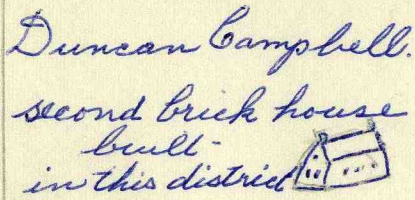 Duncan Campbell.
second brick house
built-
in this district